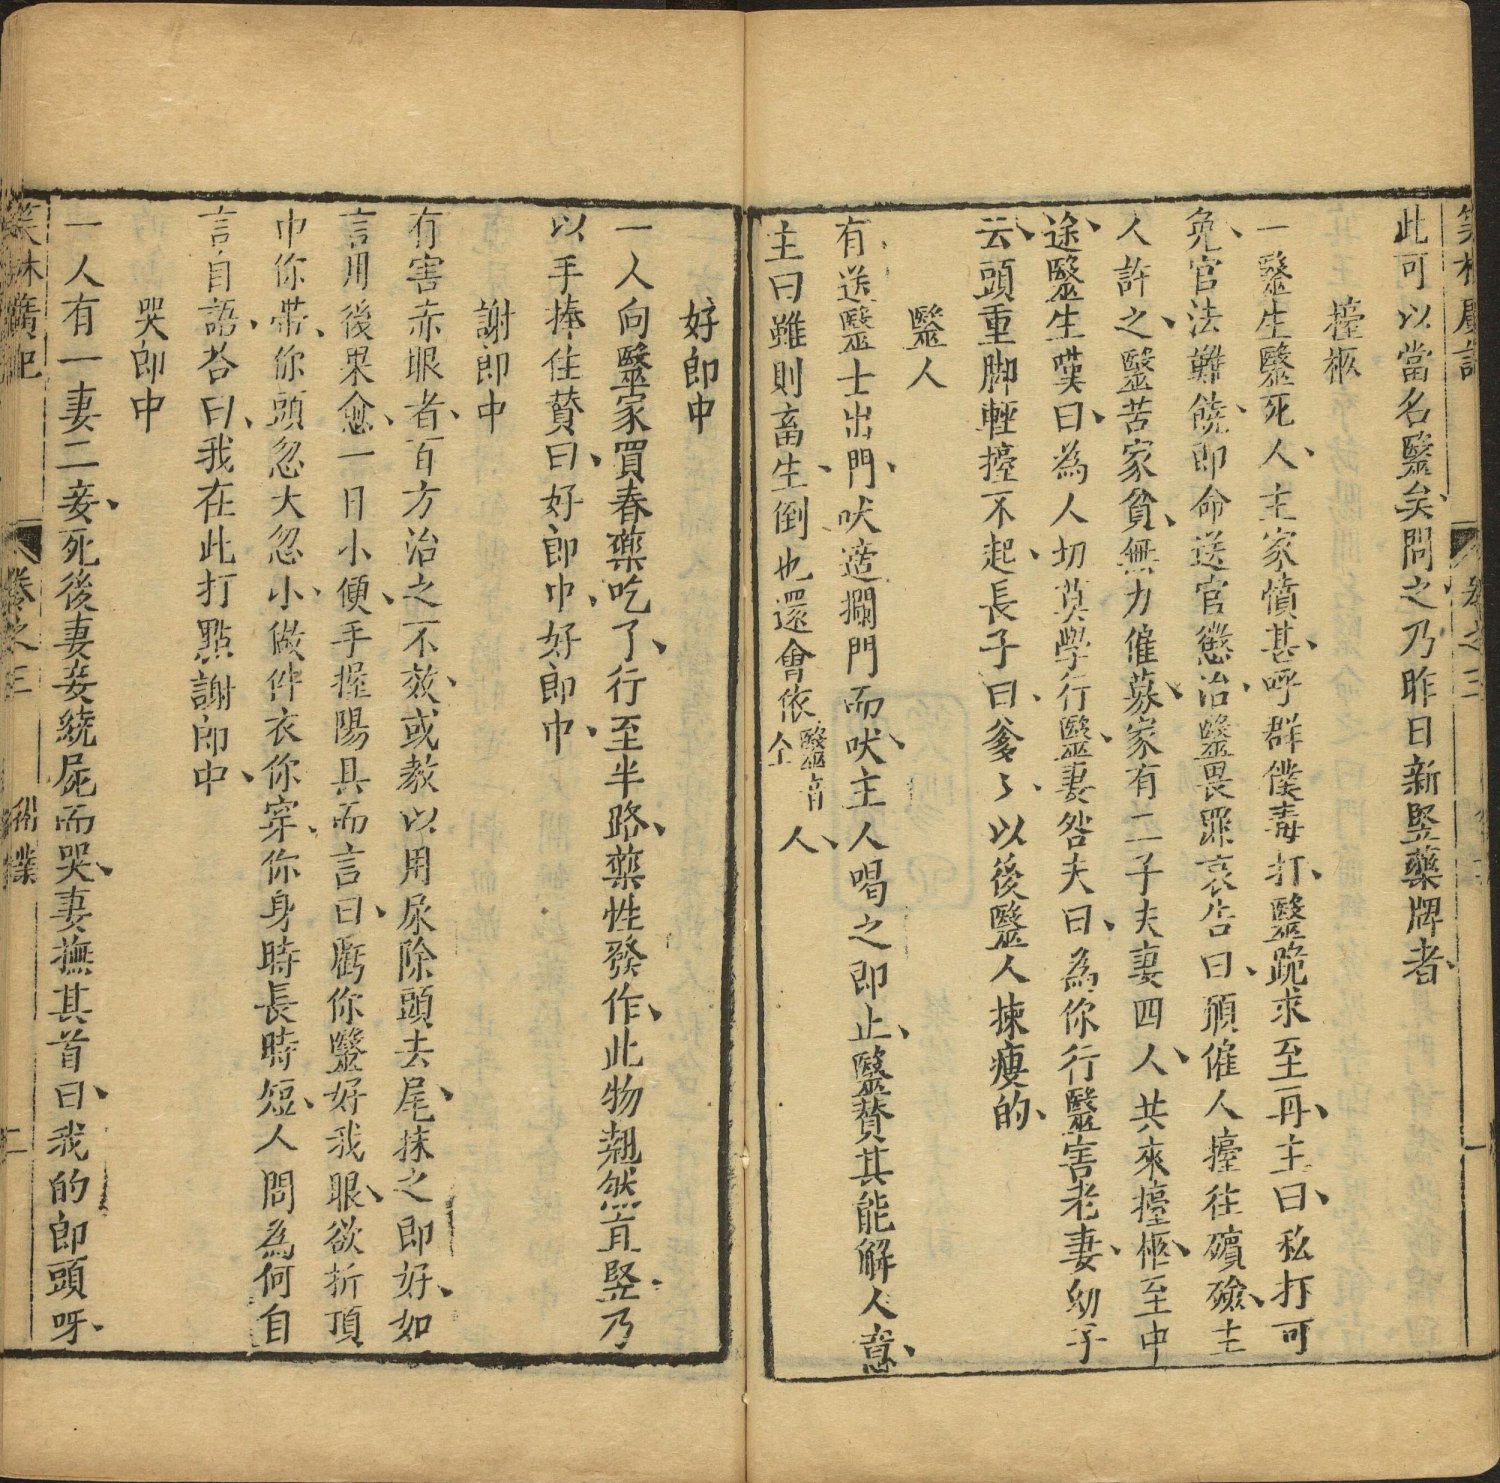 此可以當名醫矣問之乃昨日新竪藥牌者
擡柩
一醫生醫死人主家憤甚呼群僕毒打醫跪求至再主曰私打可
免官法難饒即命送官懲治醫畏罪哀告曰願僱人擡往殯殮主
人許之醫苦家貧無力僱募家有二子夫妻四人共來擡柩至中
途醫生嘆曰為人切莫學行醫妻咎夫曰為你行醫害老妻幼子
云頭重脚輕擡不起長子曰爹〻以後醫人揀瘦的
醫人
有送醫士出門吠適攔門而吠主人喝之即止醫賛其能解人意
主曰雖則畜生倒也還會依醫音仝人
好郎中
一人向醫家買春藥吃了行至半路藥性發作此物翹然直竪乃
以手捧住賛曰好郎中好郎中
謝郎中
有害赤眼者百方治之不效或教以用尿除頭去尾抹之即好如
言用後果愈一日小便手握陽具而言曰虧你醫好我眼欲折頂
巾你帶你頭忽大忽小做件衣你穿你身時長時短人問為何自
言自語答曰我在此打點謝郎中
哭郎中
一人有一妻二妾死後妻妾繞屍而哭妻撫其首曰我的郎頭呀
笑林廣記 卷之三 術業 二